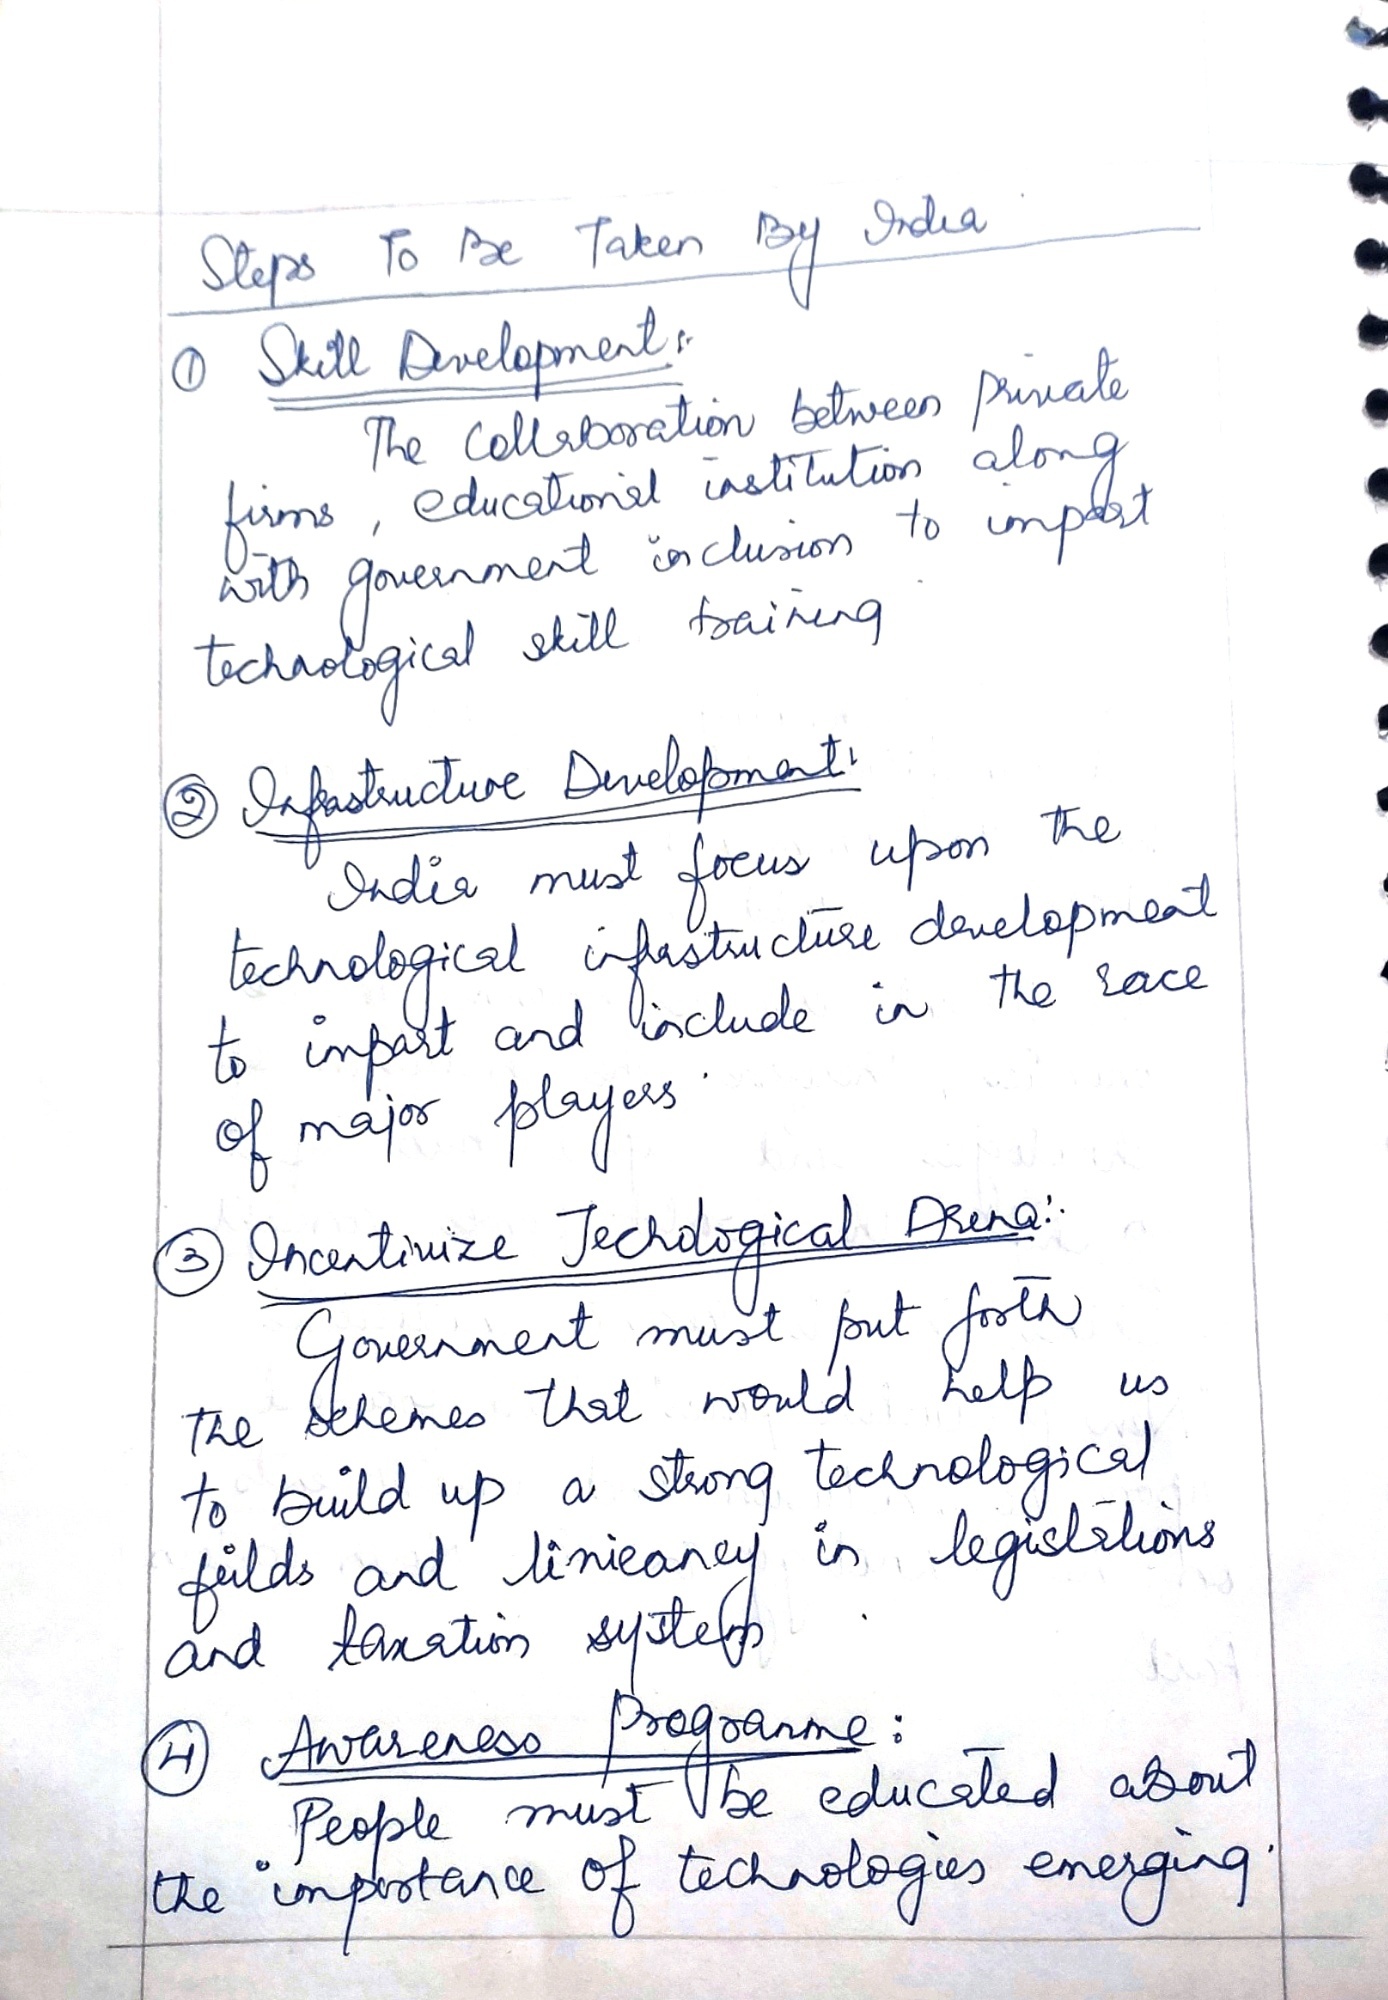 Steps To Be Taken By India
① Skill Development:-
The collaboration between private
firms, educational institution along
with government inclusion to impart
technological skill training
② Infrastructure Development:
India must focus upon the
technological infrastructure development
to impart and include in the race
of major players.
③ Incentivize Techological Arena:-
Government must put forth
the schemes that would help us
to build up a strong technological
feilds and linieancy in legislations
and taxation system
④ Awareness Programme:
People must be educated about
the importance of technologies emerging.